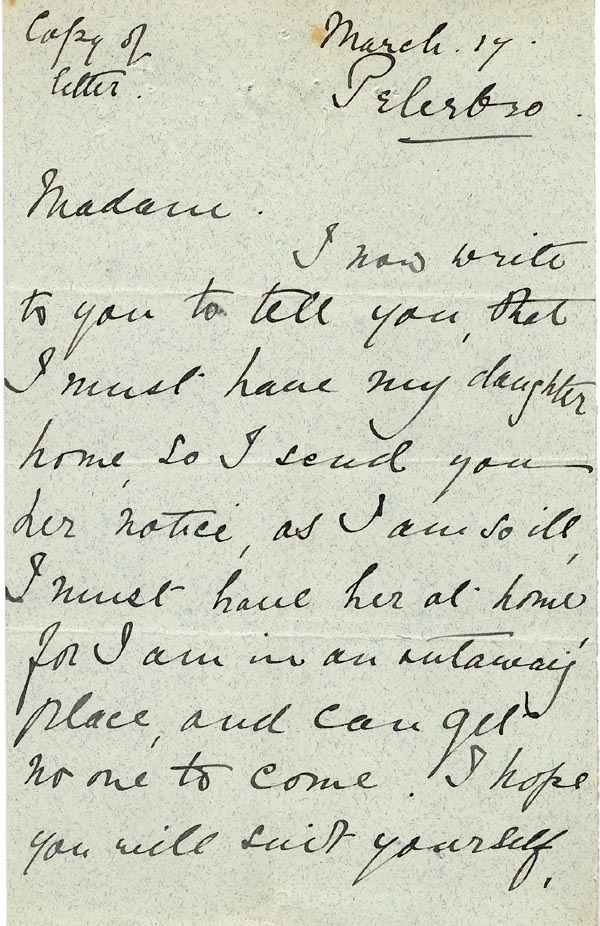 Copy of
letter.
March. 17.
Peterbro.
Madam.
I now write
to you to tell you, that
I must have my daughter
home, so I send you
her notice, as I am so ill,
I must have her at home,
for I am in an outaway
place, and can get
no one to come. I hope
you will suit yourself,